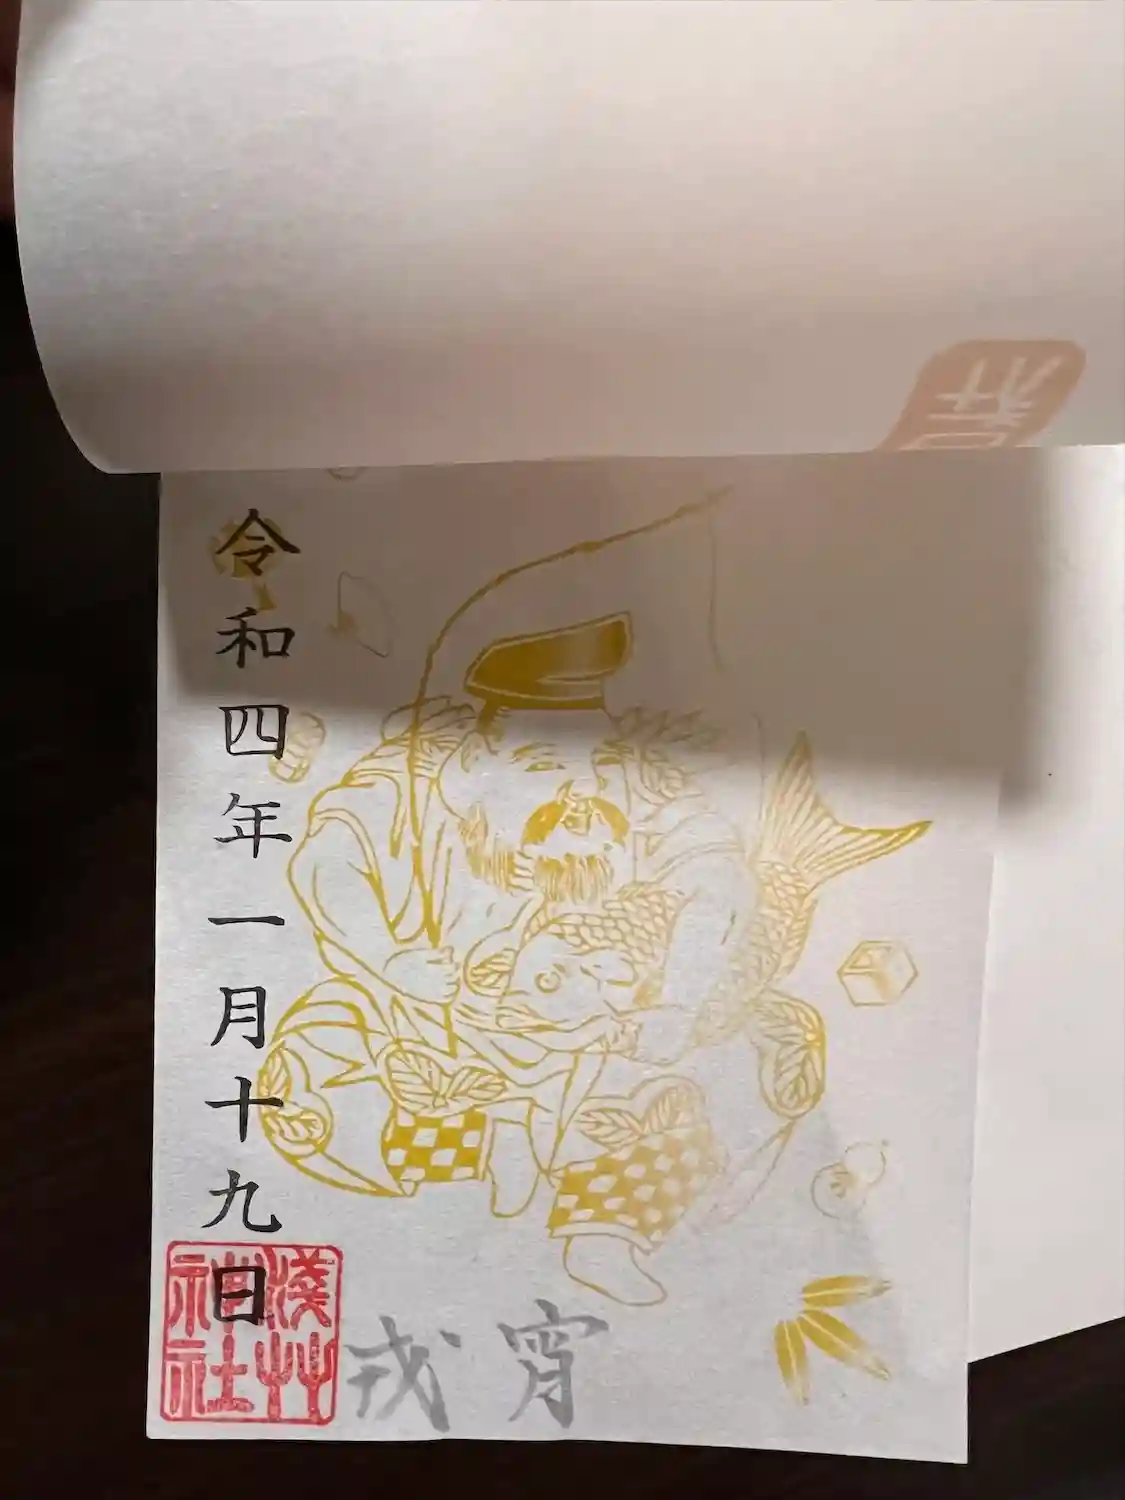 令和四年一月十九日
浅艸
神社
宵
戎